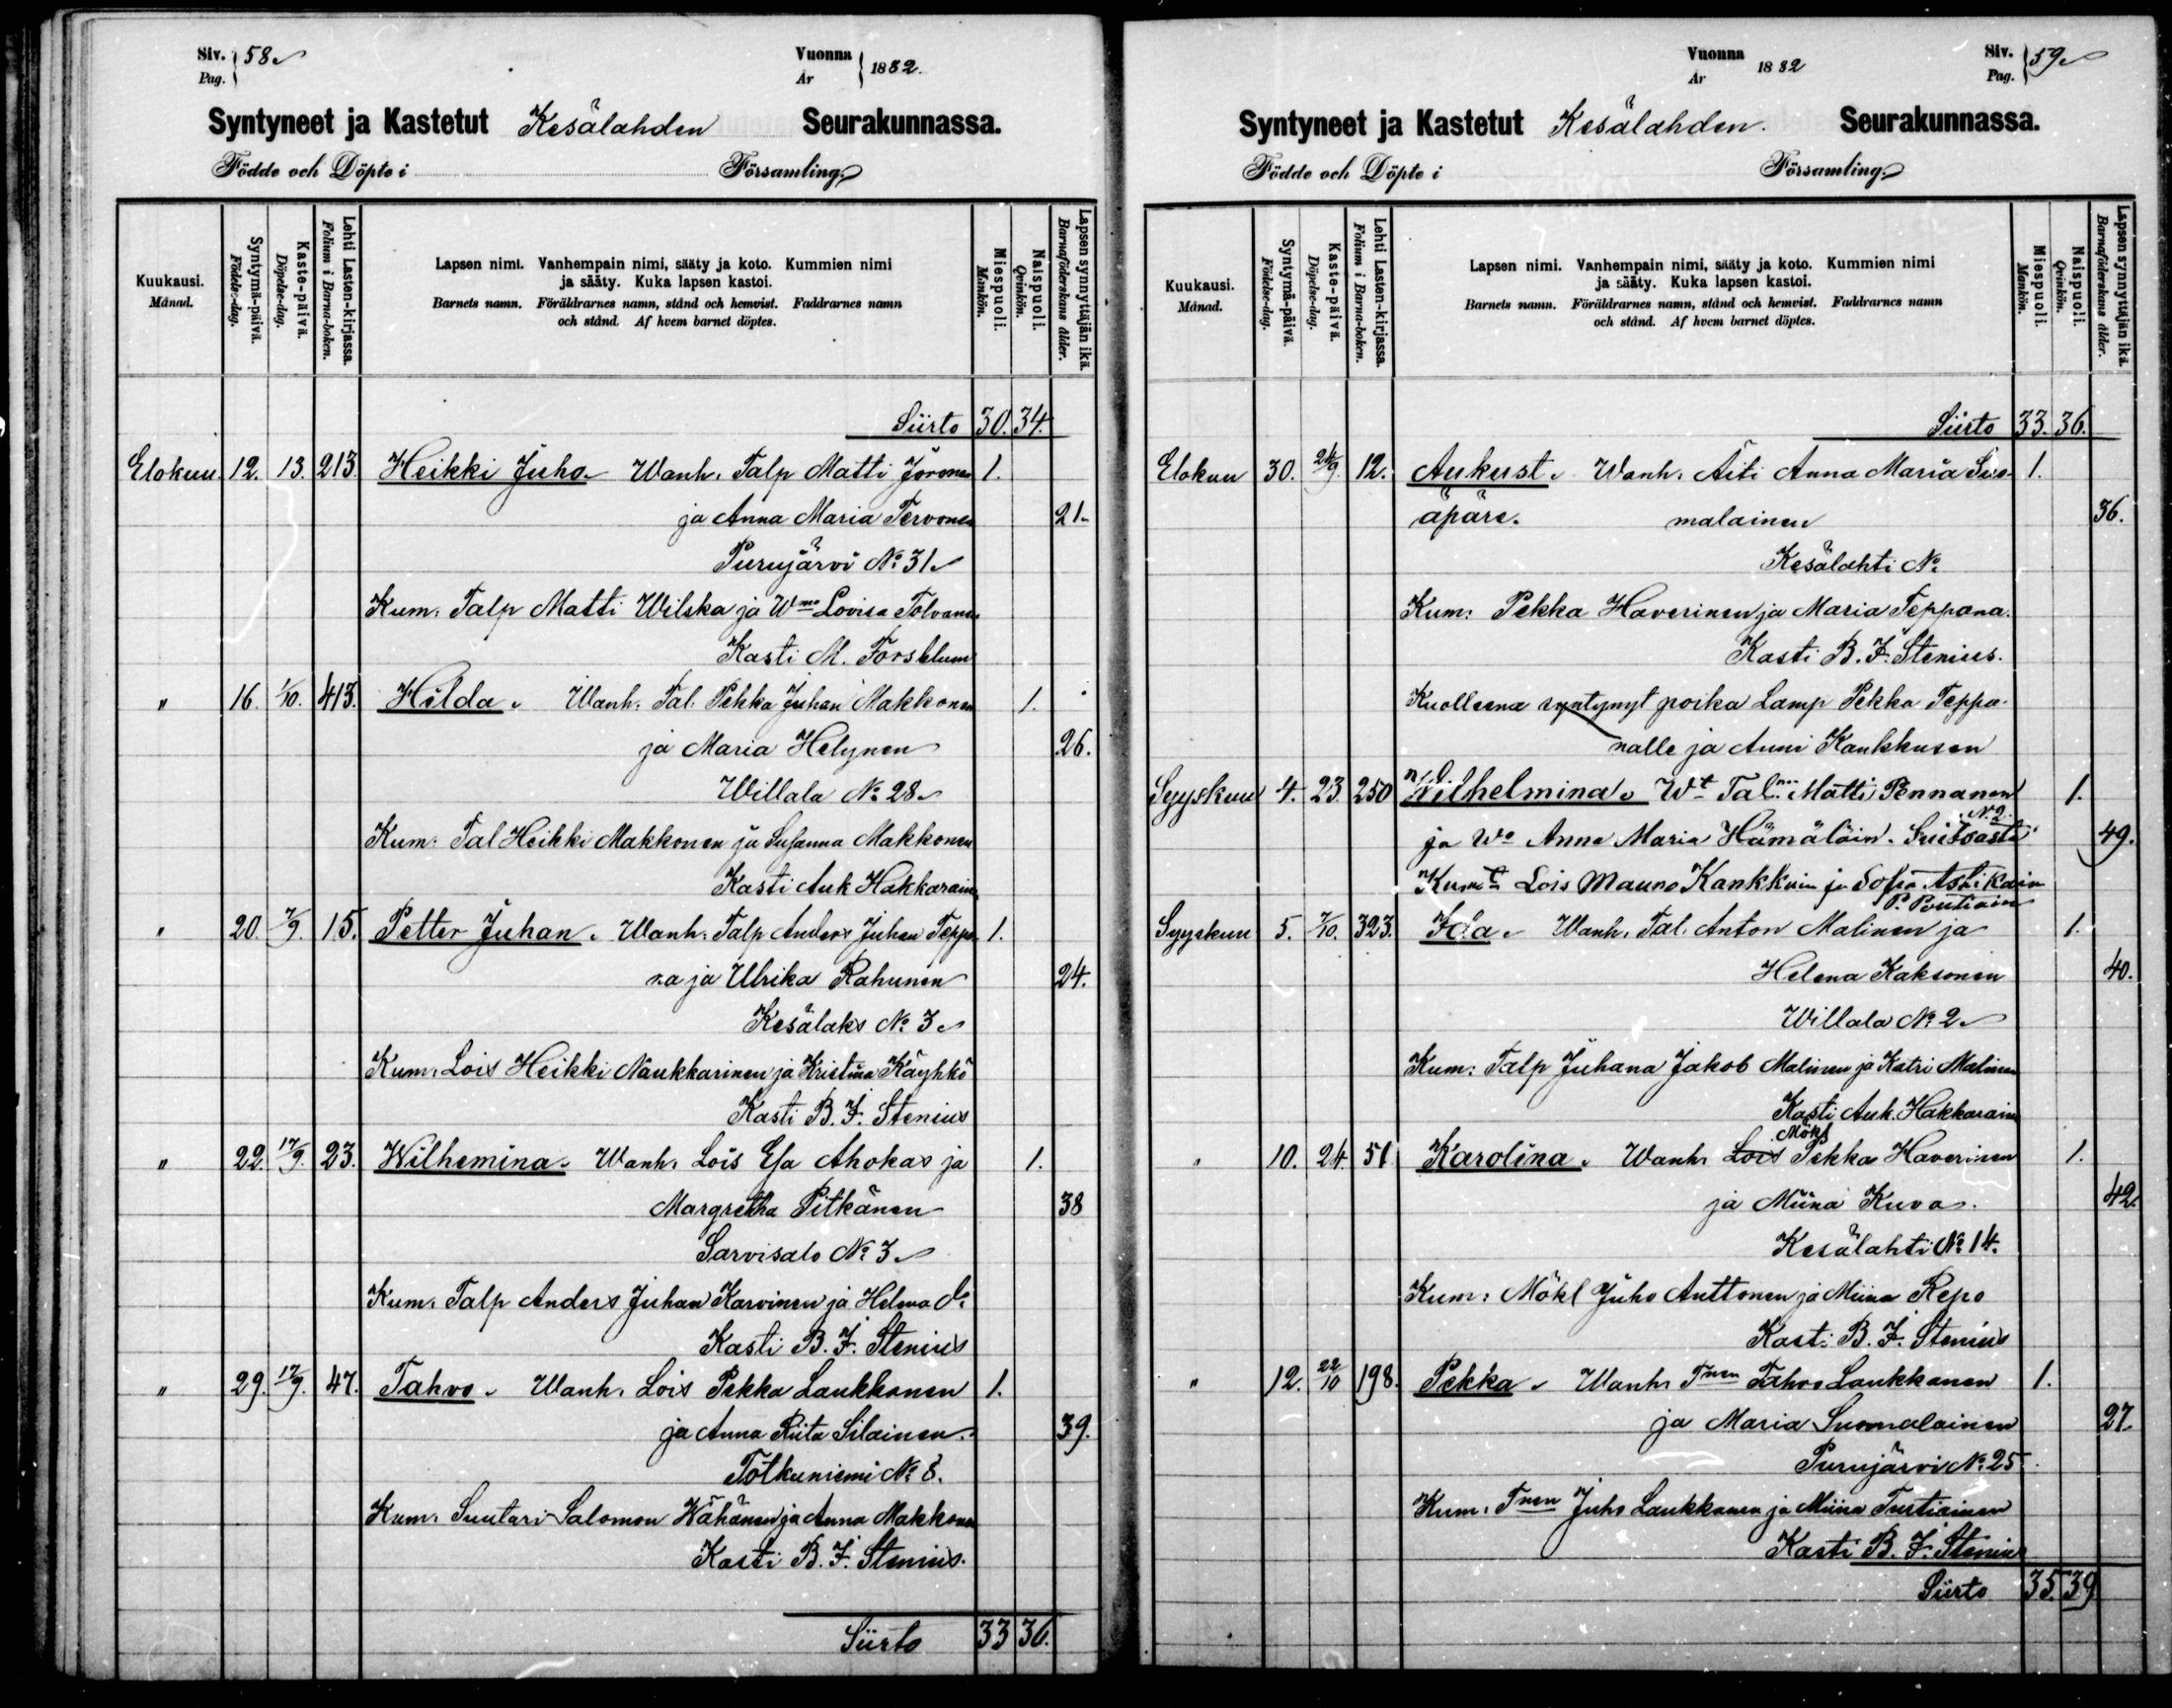 Siv. Pag. 58
Vuonna År 1882.
Syntyneet ja Kastetut Kesälahden Seurakunnassa.
Födde och Döpte i Församling.
Kuukausi. Månad.
Syntymä-päivä. Födelse-dag.
Kaste-päivä. Döpelse-dag.
Lehti Lasten-kirjassa. Folium i Barna-boken.
Lapsen nimi. Vanhempain nimi, sääty ja koto. Kummien nimi
ja sääty. Kuka lapsen kastoi.
Barnets namn. Föräldrarnes namn, stånd och hemvist. Faddrarnes namn
och stånd. Af hvem barnet döptes.
Miespuoli. Mankön.
Naispuoli. Qvinkön.
Lapsen synnyttäjän ikä. Barnaföderskans ålder.
Siirto 30. 34.
Elokuu. 12. 13. 213. Heikki Juho. Wanh. Talp Matti Joronen 1.
ja Anna Maria Tervonen 21.
Purujärvi No 31
Kum. Talp Matti Wilska ja Wmo Lovisa Tolvanen
Kasti M. Forsblum
" 16. 1/10. 413. Hilda. Wanh. Tal. Pekka Juhan Makkonen 1.
ja Maria Helynen 26.
Willala No 28
Kum: Tal Heikki Makkonen ja Susanna Makkonen
Kasti Auk Hakkarain
" 20. 7/9. 15. Petter Juhan. Wanh. Talp Anders Juhan Teppa- 1.
na ja Ulrika Rahunen 24.
Kesälaks No 3
Kum. Lois Heikki Naukkarinen ja Kristina Käyhkö
Kasti B. F. Stenius
" 22. 17/9. 23. Wilhemina. Wanh. Lois Esa Ahokas ja 1.
Margretha Pitkänen 38
Sarvisalo No 3
Kum. Talp Anders Juhan Karvinen ja Helena do
Kasti B. F. Stenius
" 29. 17/9. 47. Tahvo. Wanh. Lois Pekka Laukkanen 1.
ja Anna Riita Silainen. 39.
Totkuniemi No 8.
Kum. Suutari Salomon Wähänen ja Anna Makkonen
Kasti B. F. Stenius.
Siirto 33 36.
Vuonna År 1882
Siv. Pag. 59
Syntyneet ja Kastetut Kesälahden. Seurakunnassa.
Födde och Döpte i Församling.
Kuukausi. Månad.
Syntymä-päivä. Födelse-dag.
Kaste-päivä. Döpelse-dag.
Lehti Lasten-kirjassa. Folium i Barna-boken.
Lapsen nimi. Vanhempain nimi, sääty ja koto. Kummien nimi
ja sääty. Kuka lapsen kastoi.
Barnets namn. Föräldrarnes namn, stånd och hemvist. Faddrarnes namn
och stånd. Af hvem barnet döptes.
Miespuoli. Mankön.
Naispuoli. Qvinkön.
Lapsen synnyttäjän ikä. Barnaföderskans ålder.
Siirto 33. 36.
Elokuu 30. 24/9. 12. Aukust. Wanh. Äiti Anna Maria Suo- 1.
äpäre. malainen 36.
Kesälahti No
Kum: Pekka Haverinen ja Maria Teppana.
Kasti B. F. Stenius.
Kuolleena syntynyt poika Lamp Pekka Teppa-
nalle ja Anni Kankkusen
Syyskuu 4. 23. 250 Wilhelmina. Wt Taln Matti Pennanen 1.
No 2
ja Wo Anna Maria Hämäläin. Suitsasta 49.
Kumt Lois Mauno Kankkuin ja Sofia Asikain
P. Poutiain
Syyskuu 5. 7/10. 323. Ida. Wanh. Tal. Anton Malinen ja 1.
Helena Kaksonen 40.
Willala No 2
Kum: Talp Juhana Jakob Malinen ja Katri Malinen
Kasti Auk. Hakkarain
Mök
" 10. 24. 51 Karolina. Wanh. Lois Pekka Haverinen 1.
ja Miina Kuva. 42.
Kesälahti No 14.
Kum: Mökl Juho Anttonen ja Miina Repo
Kasti B. F. Stenius
" 12. 22/10 198. Pekka. Wanh. Tnen Tahvo Laukkanen 1.
ja Maria Suomalainen 27.
Purujärvi No 25.
Kum. Tnen Juho Laukkanen ja Miina Turtiainen
Kasti B. F. Stenius
Siirto 35. 39